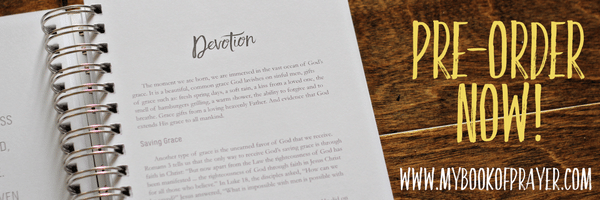 Devotion
The moment we are born, we are immersed in the vast ocean of God's
grace. It is a beautiful, common grace God lavishes on sinful men, gifts
of grace such as fresh spring days, a soft rain, a kiss from a loved one, the
smell of hamburgers grilling, a warm shower, the ability to forgive and to
breathe. Grace gifts from a loving heavenly Father. And evidence that God
extends His grace to all mankind.
Saving Grace
Another type of grace is the unearned favor of God that we receive.
Romans 3 tells us that the only way to receive God's saving grace is through
faith in Christ. "But now apart from the Law the righteousness of God has
been manifested ... the righteousness of God through faith in Jesus Christ
for all those who believe." In Luke 18, the disciples asked, "How can we
Jesus answered, "What is impossible with man is possible with
GOD,
VEN
PRE-ORDER
NOW!
WWW.MYBOOKOFPRAYER.COM